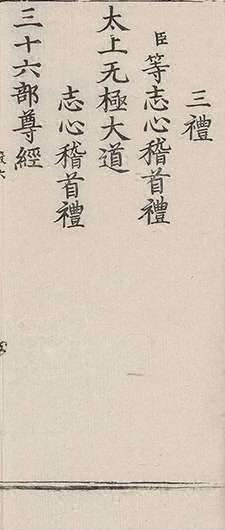 三禮
臣等志心稽首禮
太上无極大道
志心稽首禮
三十六部尊經